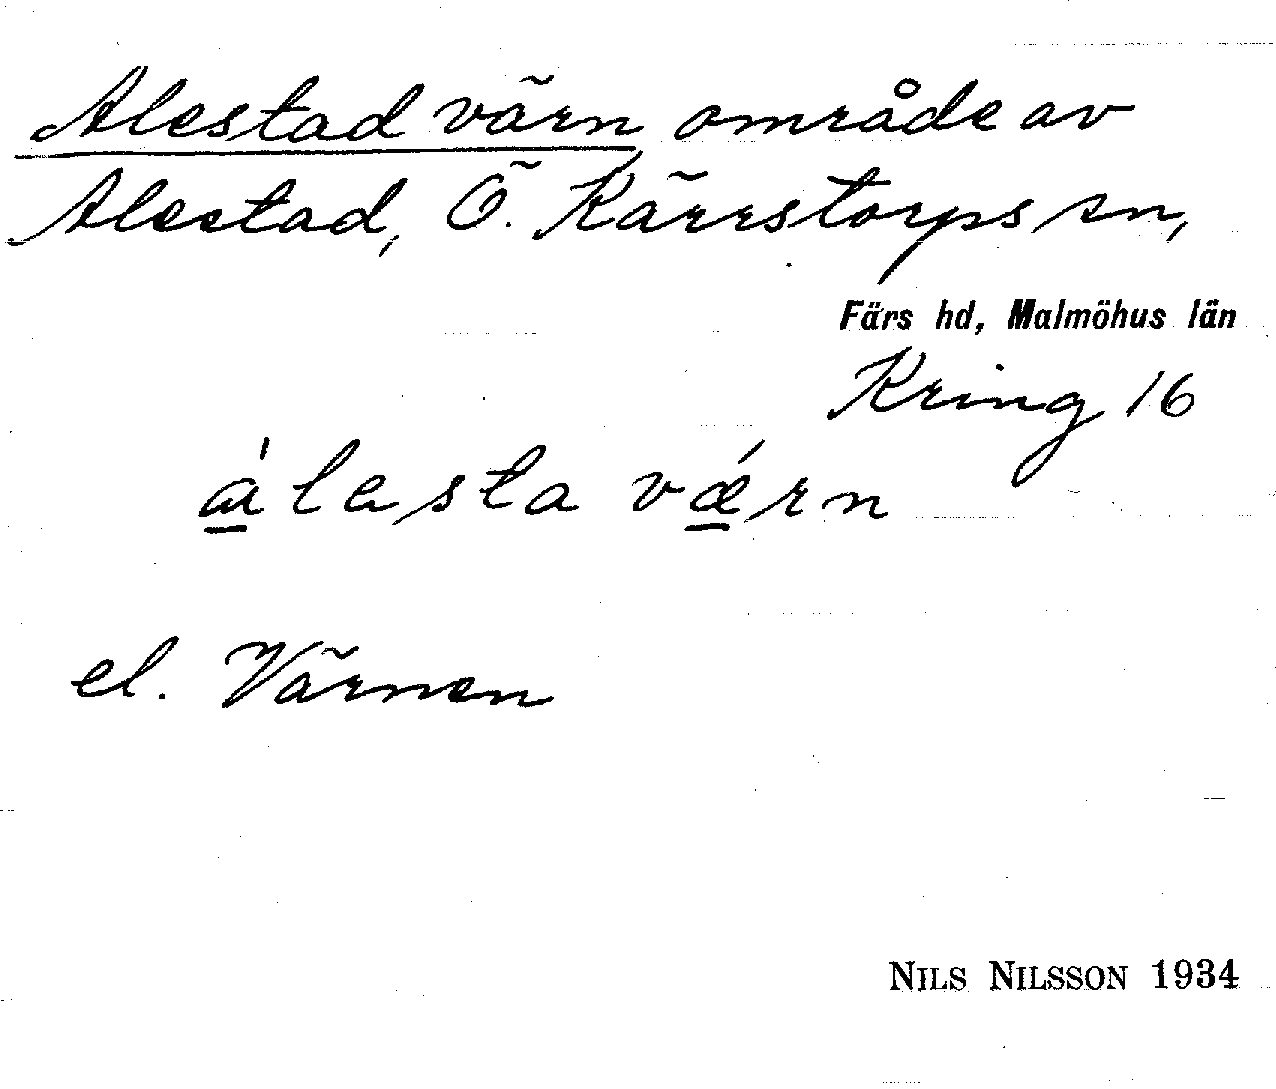 Alestad värn område av
Alestad, Ö. Kärrstorps sn,
Färs hd, Malmöhus län
Kring 16
á̱lesta vǽ̱rn
el. Värnen
NILS NILSSON 1934